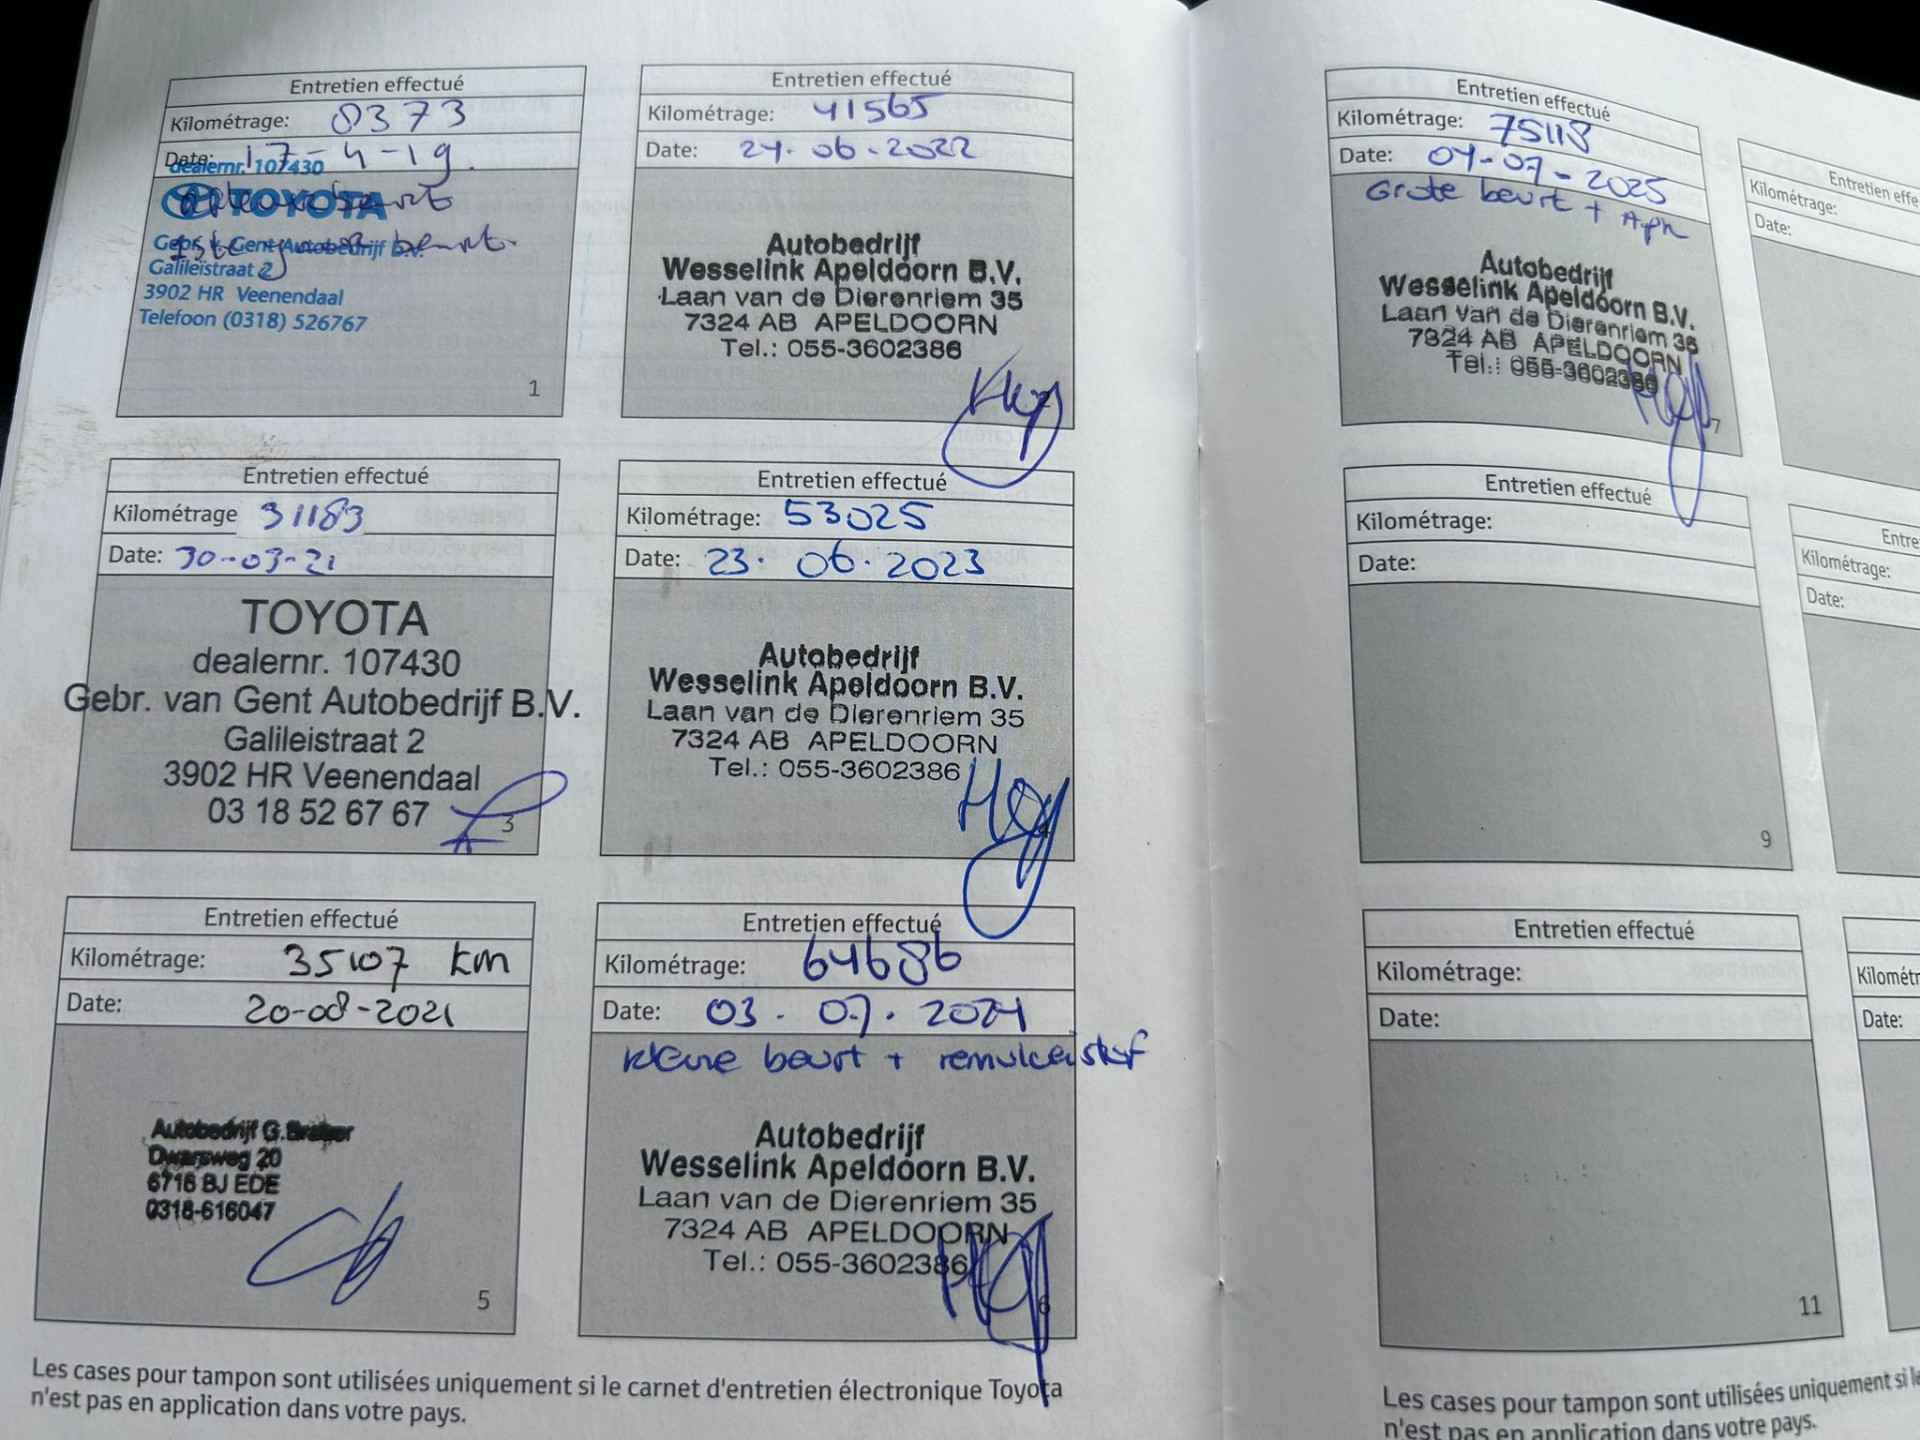 Entretien effectué
Kilométrage: 8373
Date: 17-4-19.
dealernr. 107430
TOYOTA
beurt
Gebr. v. Gent Autobedrijf B.V.
beurt.
Galileistraat 2
3902 HR Veenendaal
Telefoon (0318) 526767
1
Entretien effectué
Kilométrage: 41565
Date: 24-06-2022
Autobedrijf
Wesselink Apeldoorn B.V.
Laan van de Dierenriem 35
7324 AB APELDOORN
Tel.: 055-3602386
Entretien effectué
Kilométrage 31183
Date: 30-03-21
TOYOTA
dealernr. 107430
Gebr. van Gent Autobedrijf B.V.
Galileistraat 2
3902 HR Veenendaal
03 18 52 67 67
3
Entretien effectué
Kilométrage: 53025
Date: 23.06.2023
Autobedrijf
Wesselink Apeldoorn B.V.
Laan van de Dierenriem 35
7324 AB APELDOORN
Tel.: 055-3602386
4
Entretien effectué
Kilométrage: 35107 km
Date: 20-08-2021
Autobedrijf G.
Dwarsweg 20
6716 BJ EDE
0318-616047
5
Entretien effectué
Kilométrage: 64686
Date: 03.07.2024
kleine beurt +
Autobedrijf
Wesselink Apeldoorn B.V.
Laan van de Dierenriem 35
7324 AB APELDOORN
Tel.: 055-3602386
6
Les cases pour tampon sont utilisées uniquement si le carnet d'entretien électronique Toyota
n'est pas en application dans votre pays.
Entretien effectué
Kilométrage: 75118
Date: 04-07-2025
Grote beurt + Apk
Autobedrijf
Wesselink Apeldoorn B.V.
Laan van de Dierenriem 35
7324 AB APELDOORN
Tel.: 055-3602386
7
Entretien effe
Kilométrage:
Date:
Entretien effectué
Kilométrage:
Date:
9
Entre
Kilométrage:
Date:
Entretien effectué
Kilométrage:
Date:
11
Kilomét
Date:
Les cases pour tampon sont utilisées uniquement si le
n'est pas en application dans votre pays.